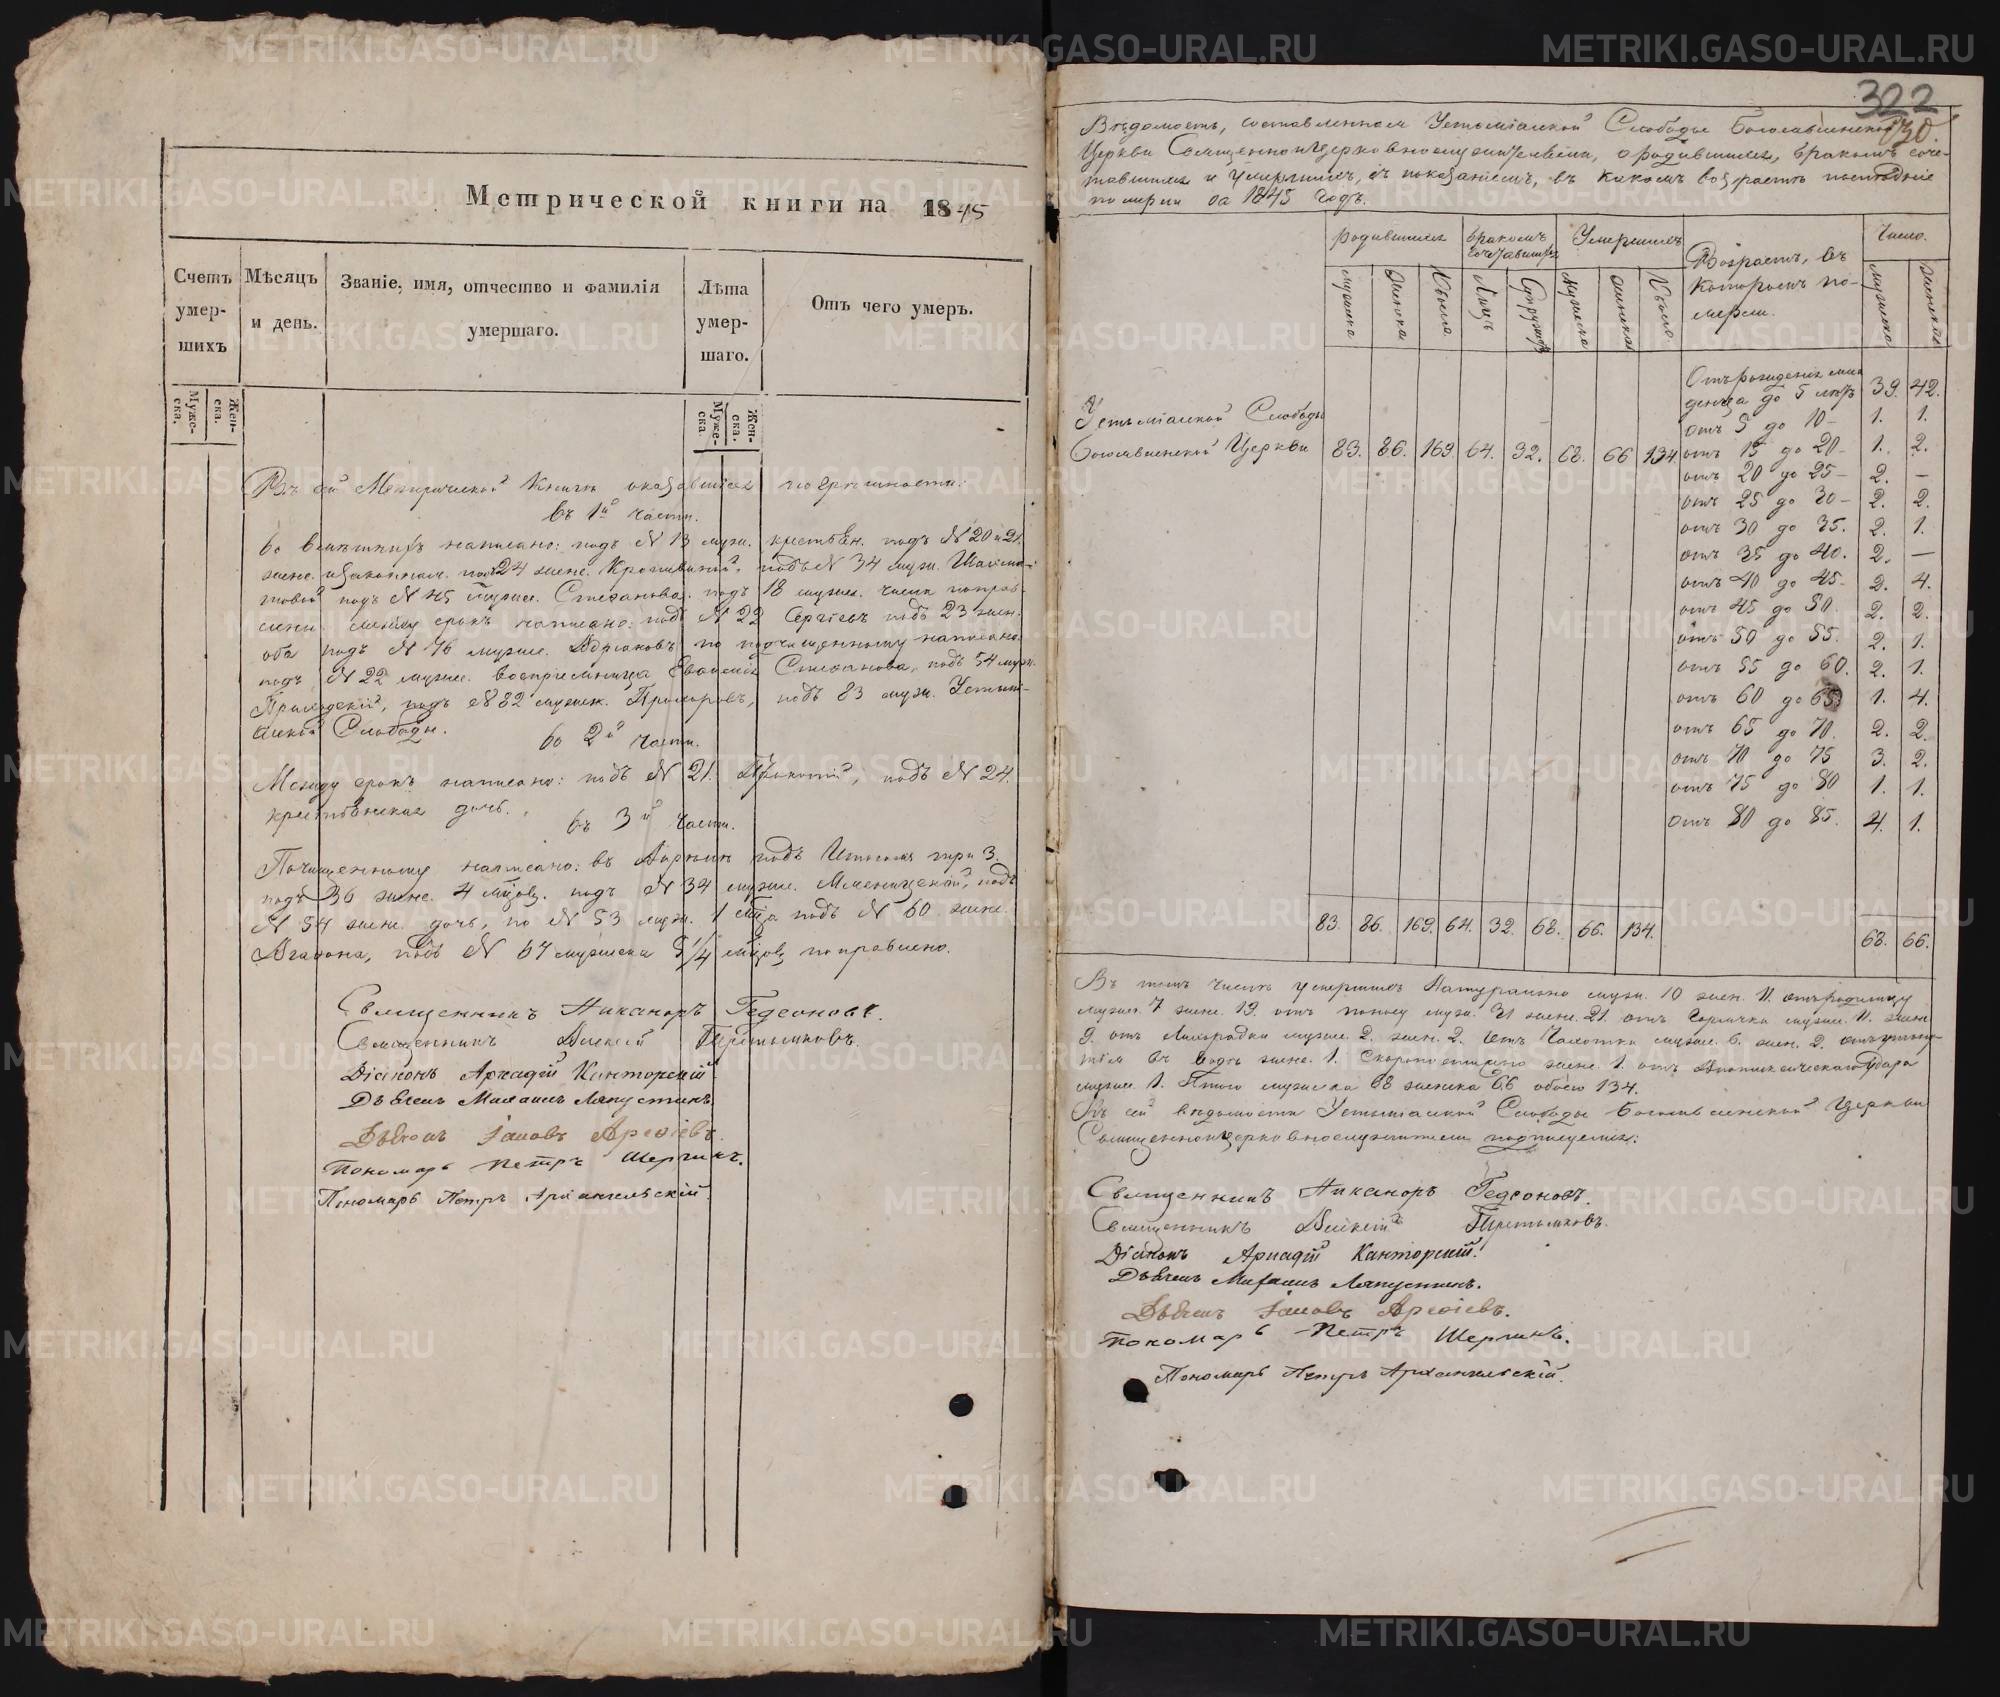 Метрической книги на 1845
Счетъ умер- шихъ
Мѣсяцъ и день.
Званіе, имя, отчество и фамилія умершаго.
Лѣта умер- шаго.
Отъ чего умеръ.
Муже- ска.
Жен- ска.
Муже- ска.
Жен- ска.
Въ сей Метрической Книгѣ оказавшіяся погрѣшности:
въ 1й части.
написано: подъ N 13 муж. крестьян. подъ N 20 и 21.
жен. подъ 24 жен. подъ N 34 муж.
подъ N 45 муж. Степанова. подъ 18 муж. числа поправ-
лены между срокъ написано: подъ N 22 Сергѣевъ подъ 23 жен.
оба подъ N 76 муж. по подчищенному написано
подъ N 22 муж. воспріемница Степанова, подъ 54 муж.
подъ N 82 муж. Прохоровъ, подъ 83 муж. Устьми-
аской Слободы.
во 2й части.
Между срокъ написано: подъ N 21. подъ N 24.
крестьянская дочь.
въ 3й части.
Почищенному написано: въ подъ Итогомъ три 3.
подъ 36 жен. 4 мѣсяц. подъ N 34 муж. подъ
N 54 жен. дочь, по N 53 муж. 1 подъ N 60 жен.
Агафона, подъ N 67 мужеска поправлено.
Священникъ Никаноръ Гедеоновъ.
Священникъ Алексій Третьяковъ.
Діаконъ Аркадій Канторскій
Дьячекъ Михаилъ Ляпустинъ
Дьячекъ Іаковъ Арефіевъ.
Пономарь Петръ Шергинъ.
Пономарь Петръ Архангельскій
322
130.
Вѣдомость, составленная Устьміаской Слободы Богоявленской
Церкви Священноцерковнослужителями, о родившихся, бракомъ соче-
тавшихся и умершихъ, съ показаніемъ, въ какомъ возрастѣ послѣдніе
померли за 1845 годъ.
родившихся
бракомъ сочетавшихся
Умершихъ
Возрастъ, въ которомъ по- мерли.
Число.
мужеска
женска
Обоего
Лицъ
Супружествъ
мужеска
женска
Обоего
мужеска
женска
Отъ рожденія мла- денца до 5 лѣтъ 39. 42.
отъ 5 до 10 – 1. 1.
Устьміаской Слободы
Богоявленской Церкви 83. 86. 169. 64. 32. 68. 66 134.
отъ 15 до 20 – 1. 2.
отъ 20 до 25 – 2. –
отъ 25 до 30 – 2. 2.
отъ 30 до 35. 2. 1.
отъ 35 до 40. 2. –
отъ 40 до 45 – 2. 4.
отъ 45 до 50. 2. 2.
отъ 50 до 55. 2. 1.
отъ 55 до 60. 2. 1.
отъ 60 до 65 1. 4.
отъ 65 до 70. 2. 2.
отъ 70 до 75 3. 2.
отъ 75 до 80 1. 1.
отъ 80 до 85. 4. 1.
83. 86. 169. 64. 32. 68. 66. 134. 68. 66.
Въ томъ числѣ умершихъ Натурально муж. 10 жен. 11. отъ родимцу
муж. 7 жен. 19. отъ поносу муж. 31 жен. 21. отъ Горячки муж. 11. жен.
9. отъ Лихорадки муж. 2. жен. 2. отъ Чахотки муж. 6. жен. 2.
въ водѣ жен. 1. Скоропостижно жен. 1. отъ Апоплексическаго Удара
муж. 1. Итого мужеска 68 женска 66 обоего 134.
Къ сей вѣдомости Устьміаской Слободы Богоявленской Церкви
Священноцерковнослужители подписуемся:
Священникъ Никаноръ Гедеоновъ.
Священникъ Алексій Третьяковъ.
Діаконъ Аркадій Канторскій.
Дьячекъ Михаилъ Ляпустинъ.
Дьячекъ Іаковъ Арефіевъ.
Пономарь Петръ Шергинъ.
Пономарь Петръ Архангельскій.
METRIKI.GASO-URAL.RU